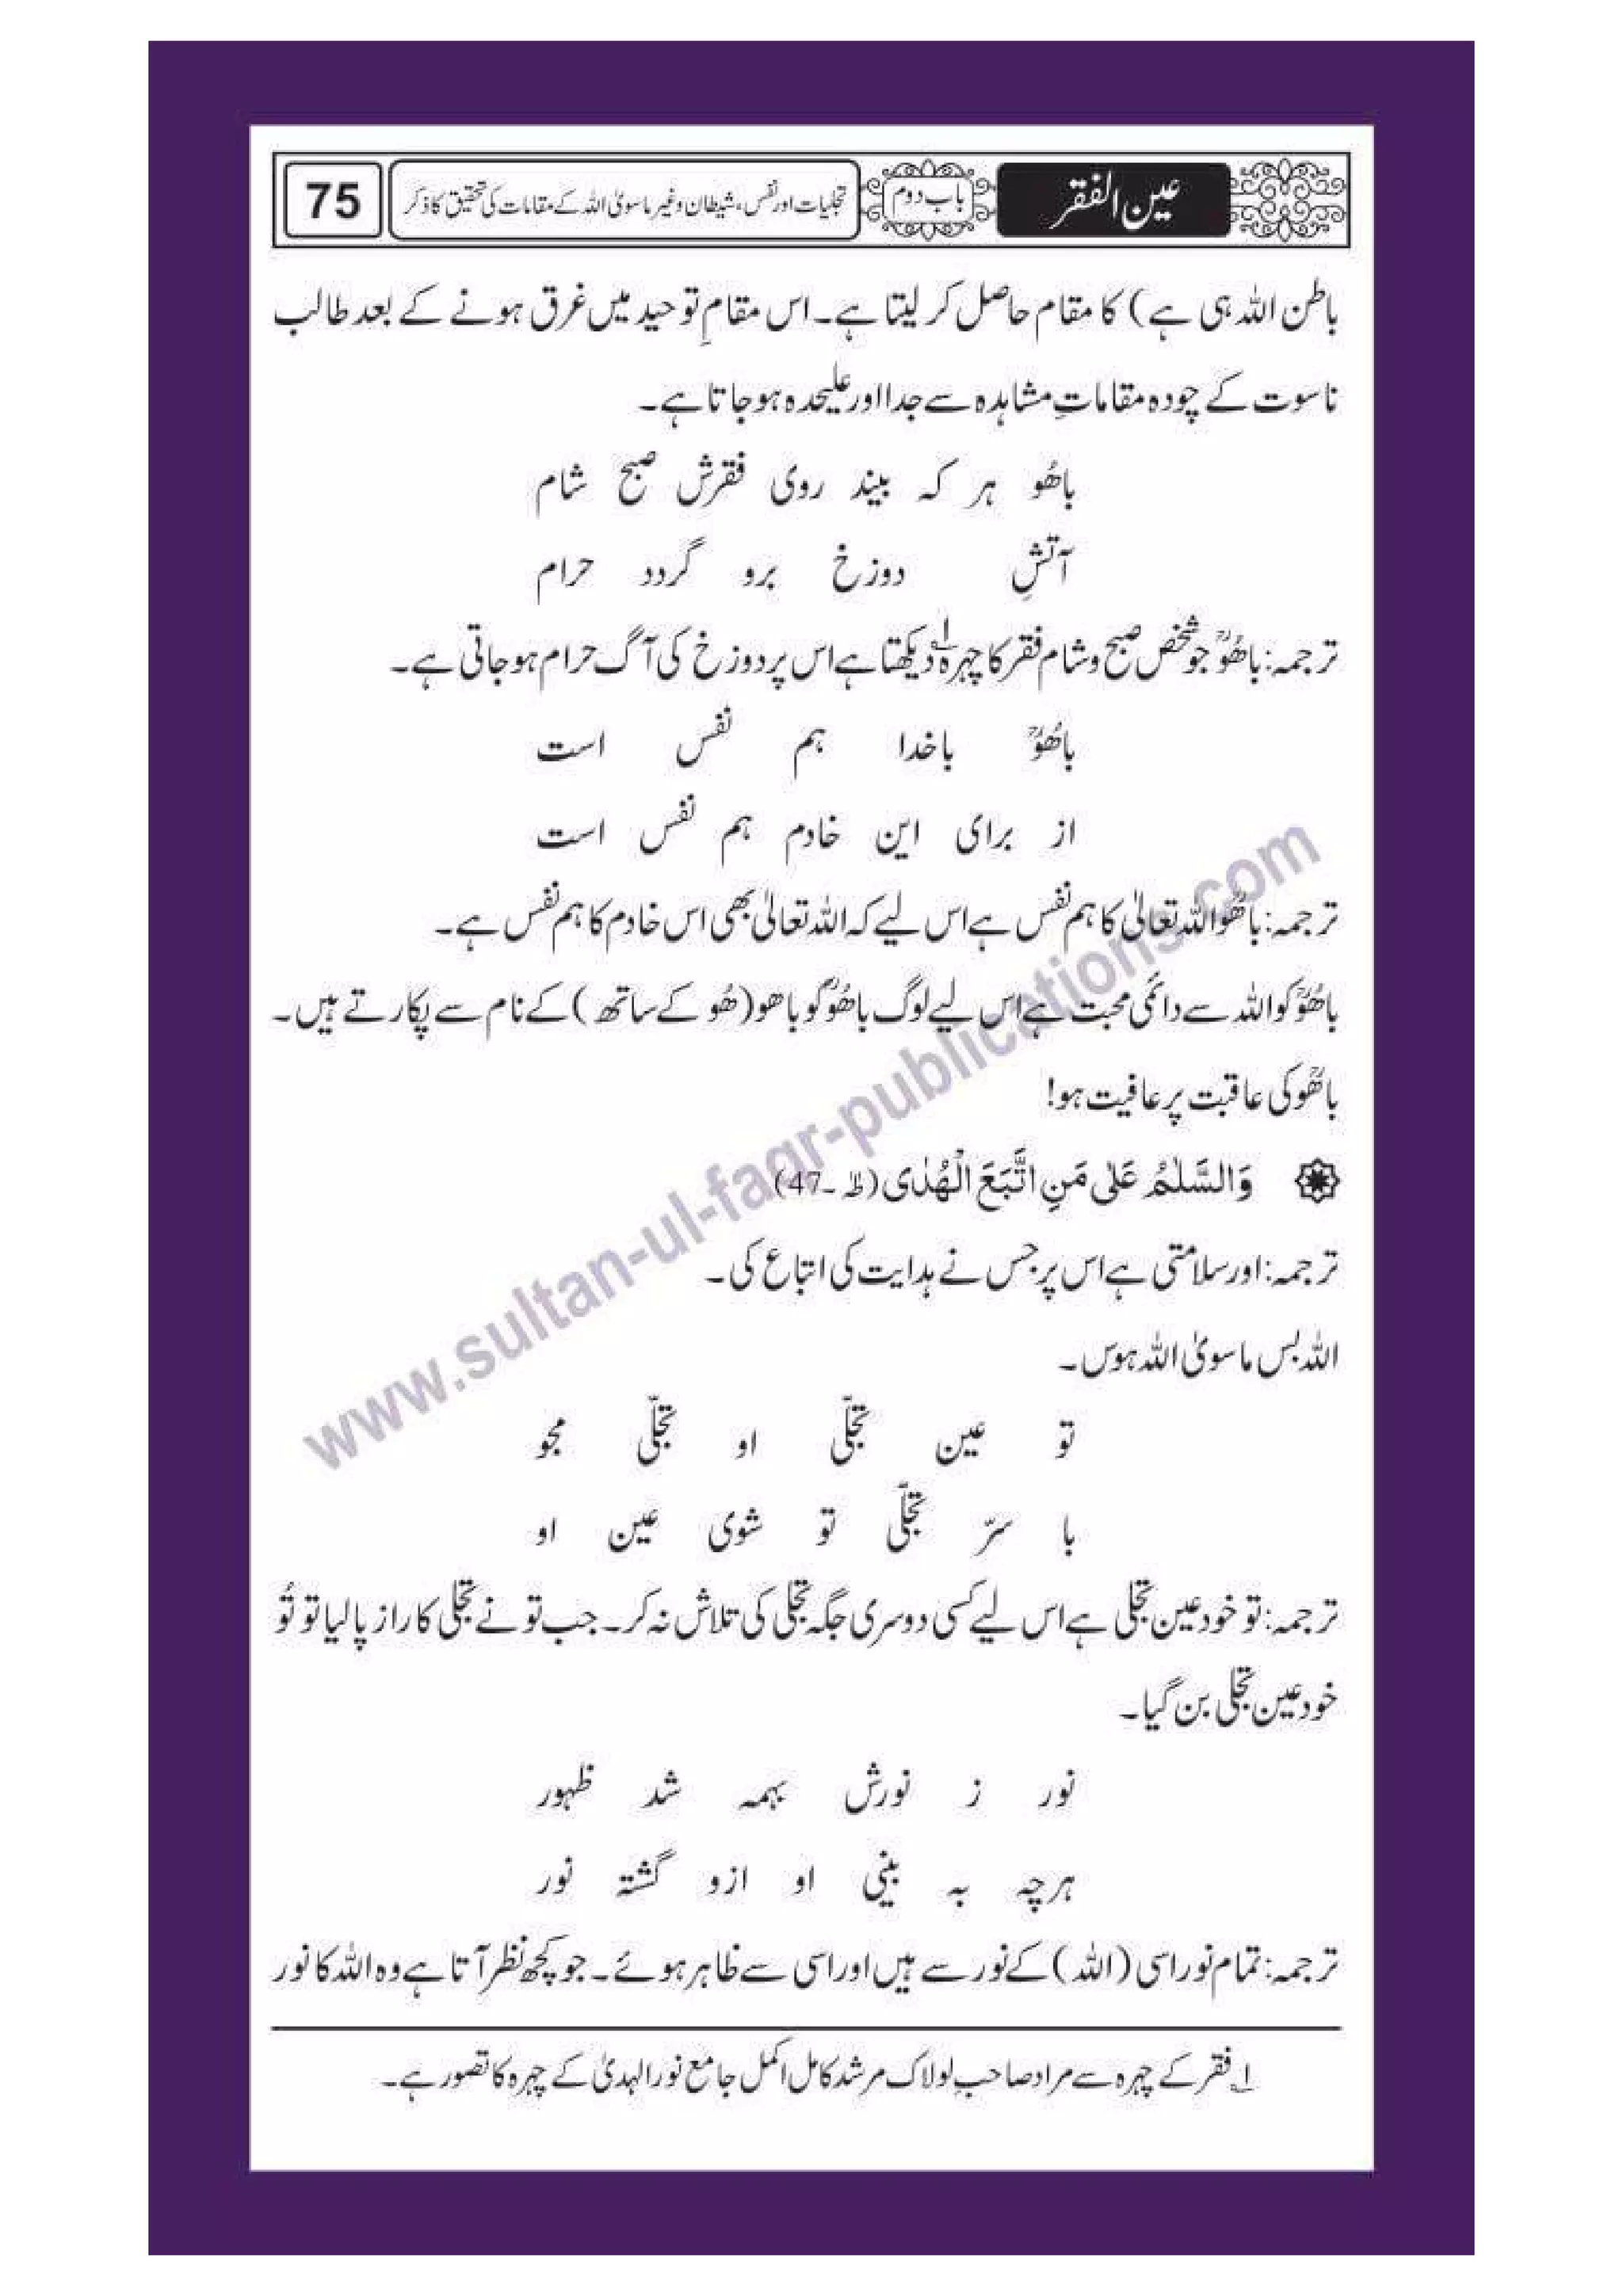 عین الفقر
باب دوم
تجلیات اور نفس، شیطان وغیر ماسویٰ اللہ کے مقامات کی تحقیق کا ذکر
75
باطن اللہ ہی ہے) کا مقام حاصل کر لیتا ہے۔ اس مقامِ توحید میں غرق ہونے کے بعد طالب
ناسوت کے چودہ مقاماتِ مشاہدہ سے جدا اور علیحدہ ہو جاتا ہے۔
باھُو ہر کہ بیند روی فقرش صبح شام
آتشِ دوزخ برو گردد حرام
ترجمہ: باھُوؒ جو شخص صبح وشام فقر کا چہرہ۱؎ دیکھتا ہے اس پر دوزخ کی آگ حرام ہو جاتی ہے۔
باھُوؒ باخدا ہم نفس است
از برای این خادم ہم نفس است
ترجمہ: باھُوؒ اللہ تعالیٰ کا ہم نفس ہے اس لیے کہ اللہ تعالیٰ بھی اس خادم کا ہم نفس ہے۔
باھُوؒ کو اللہ سے دائمی محبت ہے اس لیے لوگ باھُوؒ کو باھو (ھُو کے ساتھ) کے نام سے پکارتے ہیں۔
باھُوؒ کی عاقبت پر عافیت ہو!
وَالسَّلٰمُ عَلٰی مَنِ اتَّبَعَ الْھُدٰی (طٰہٰ۔47)
ترجمہ: اور سلامتی ہے اس پر جس نے ہدایت کی اتباع کی۔
اللہ بس ماسویٰ اللہ ہوس۔
تو عین تجلّی او تجلّی مجو
با سرّ تجلّی تو شوی عین او
ترجمہ: تو خود عین تجلی ہے اس لیے کسی دوسری جگہ تجلی کی تلاش نہ کر۔ جب تو نے تجلی کا راز پا لیا تو تُو
خود عین تجلی بن گیا۔
نور ز نورش بہمہ شد ظہور
ہرچہ بہ بینی او ازو گشتہ نور
ترجمہ: تمام نور اسی (اللہ) کے نور سے ہیں اور اسی سے ظاہر ہوئے۔ جو کچھ نظر آتا ہے وہ اللہ کا نور
۱؎ فقر کے چہرہ سے مراد صاحبِ لولاک مرشد کامل اکمل جامع نور الہدیٰ کے چہرہ کا تصور ہے۔
www.sultan-ul-faqr-publications.com